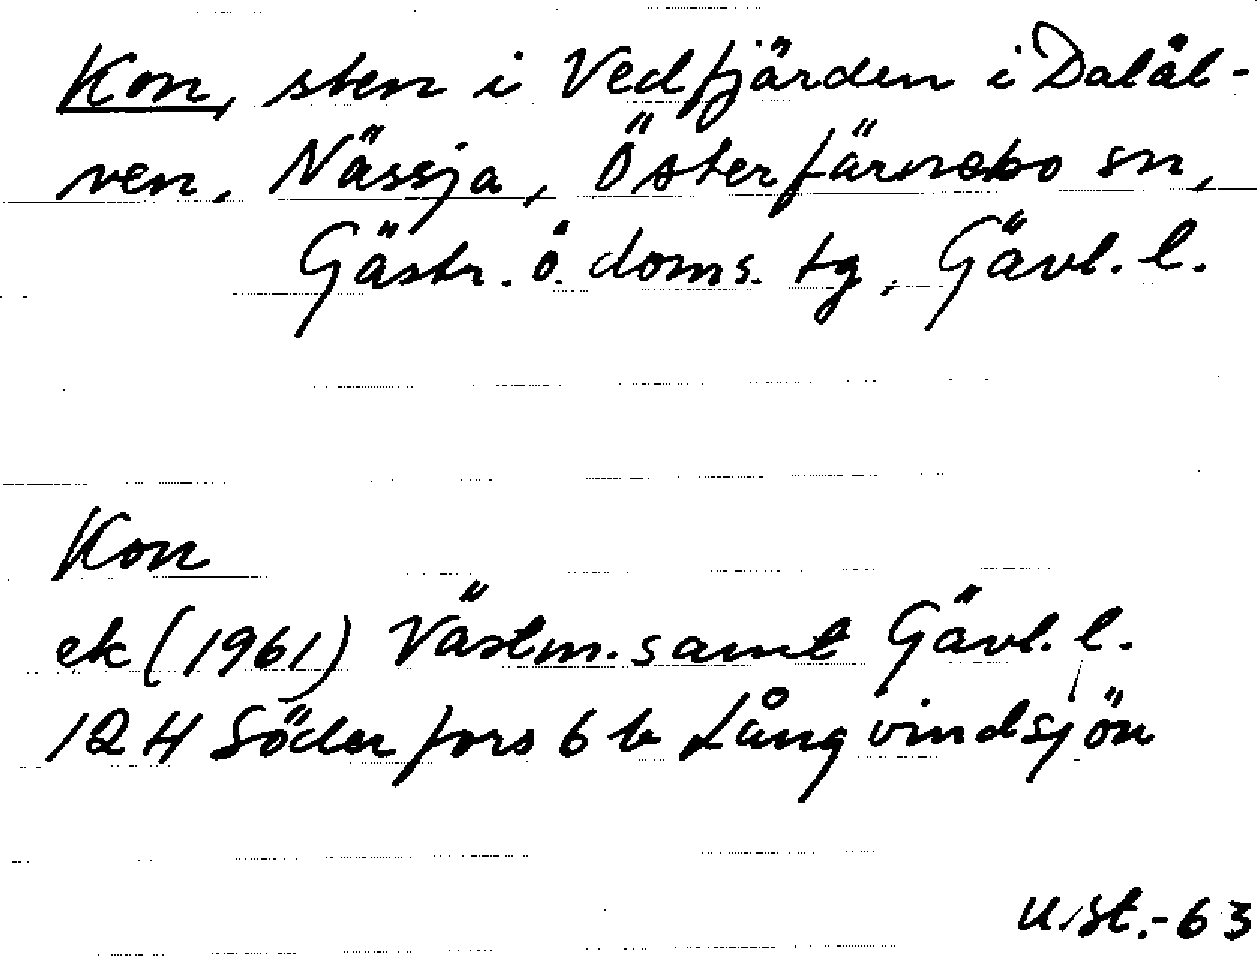 Kon, sten i Vedfjärden i Daläl-
ven. Nässja, Österfärnebo sn,
Gästr. ö. doms. tg, Gävl. l.
Kon
ek (1961) Västm. samt Gävl. l.
12 H Söderfors 6 b Långvindsjön
U. St. -63